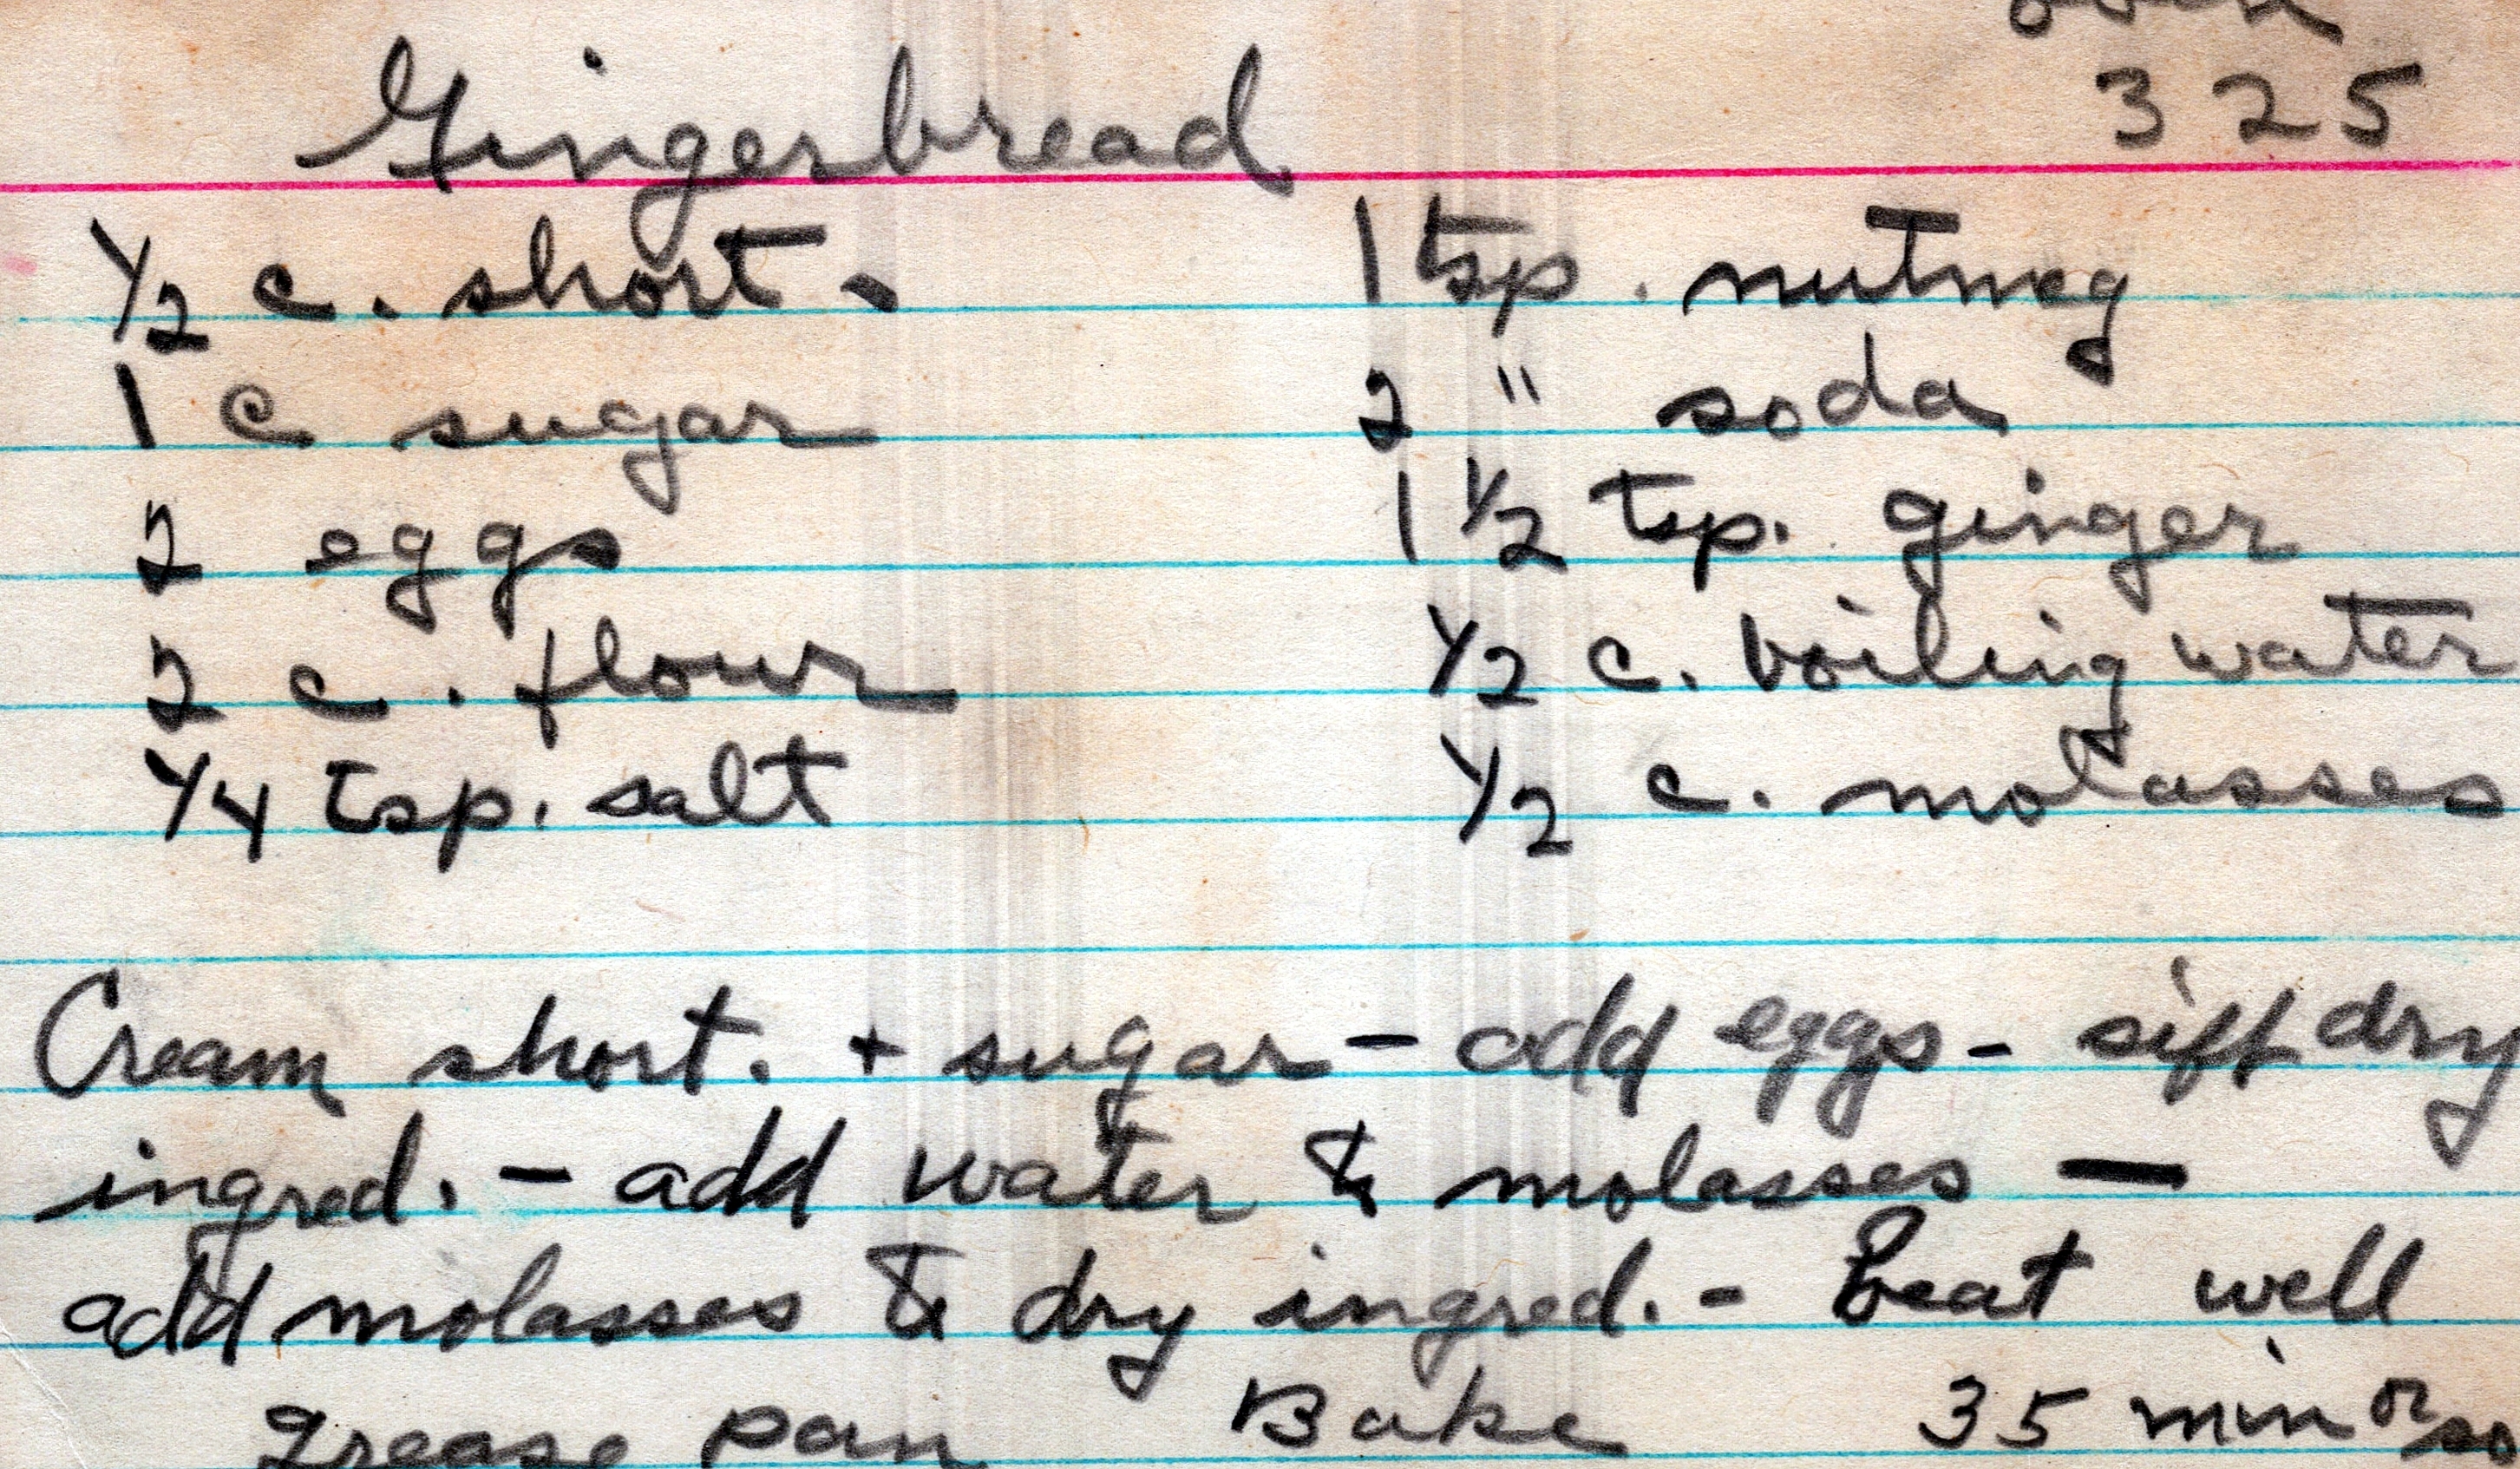 oven
Gingerbread 325
1/2 c. short.
1 c sugar
2 eggs
2 c. flour
1/4 tsp. salt
1 tsp. nutmeg
2 " soda
1 1/2 tsp. ginger
1/2 c. boiling water
1/2 c. molasses
Cream short. + sugar - add eggs - sift dry
ingred. - add water & molasses —
add molasses & dry ingred. - beat well
grease pan Bake 35 min or so